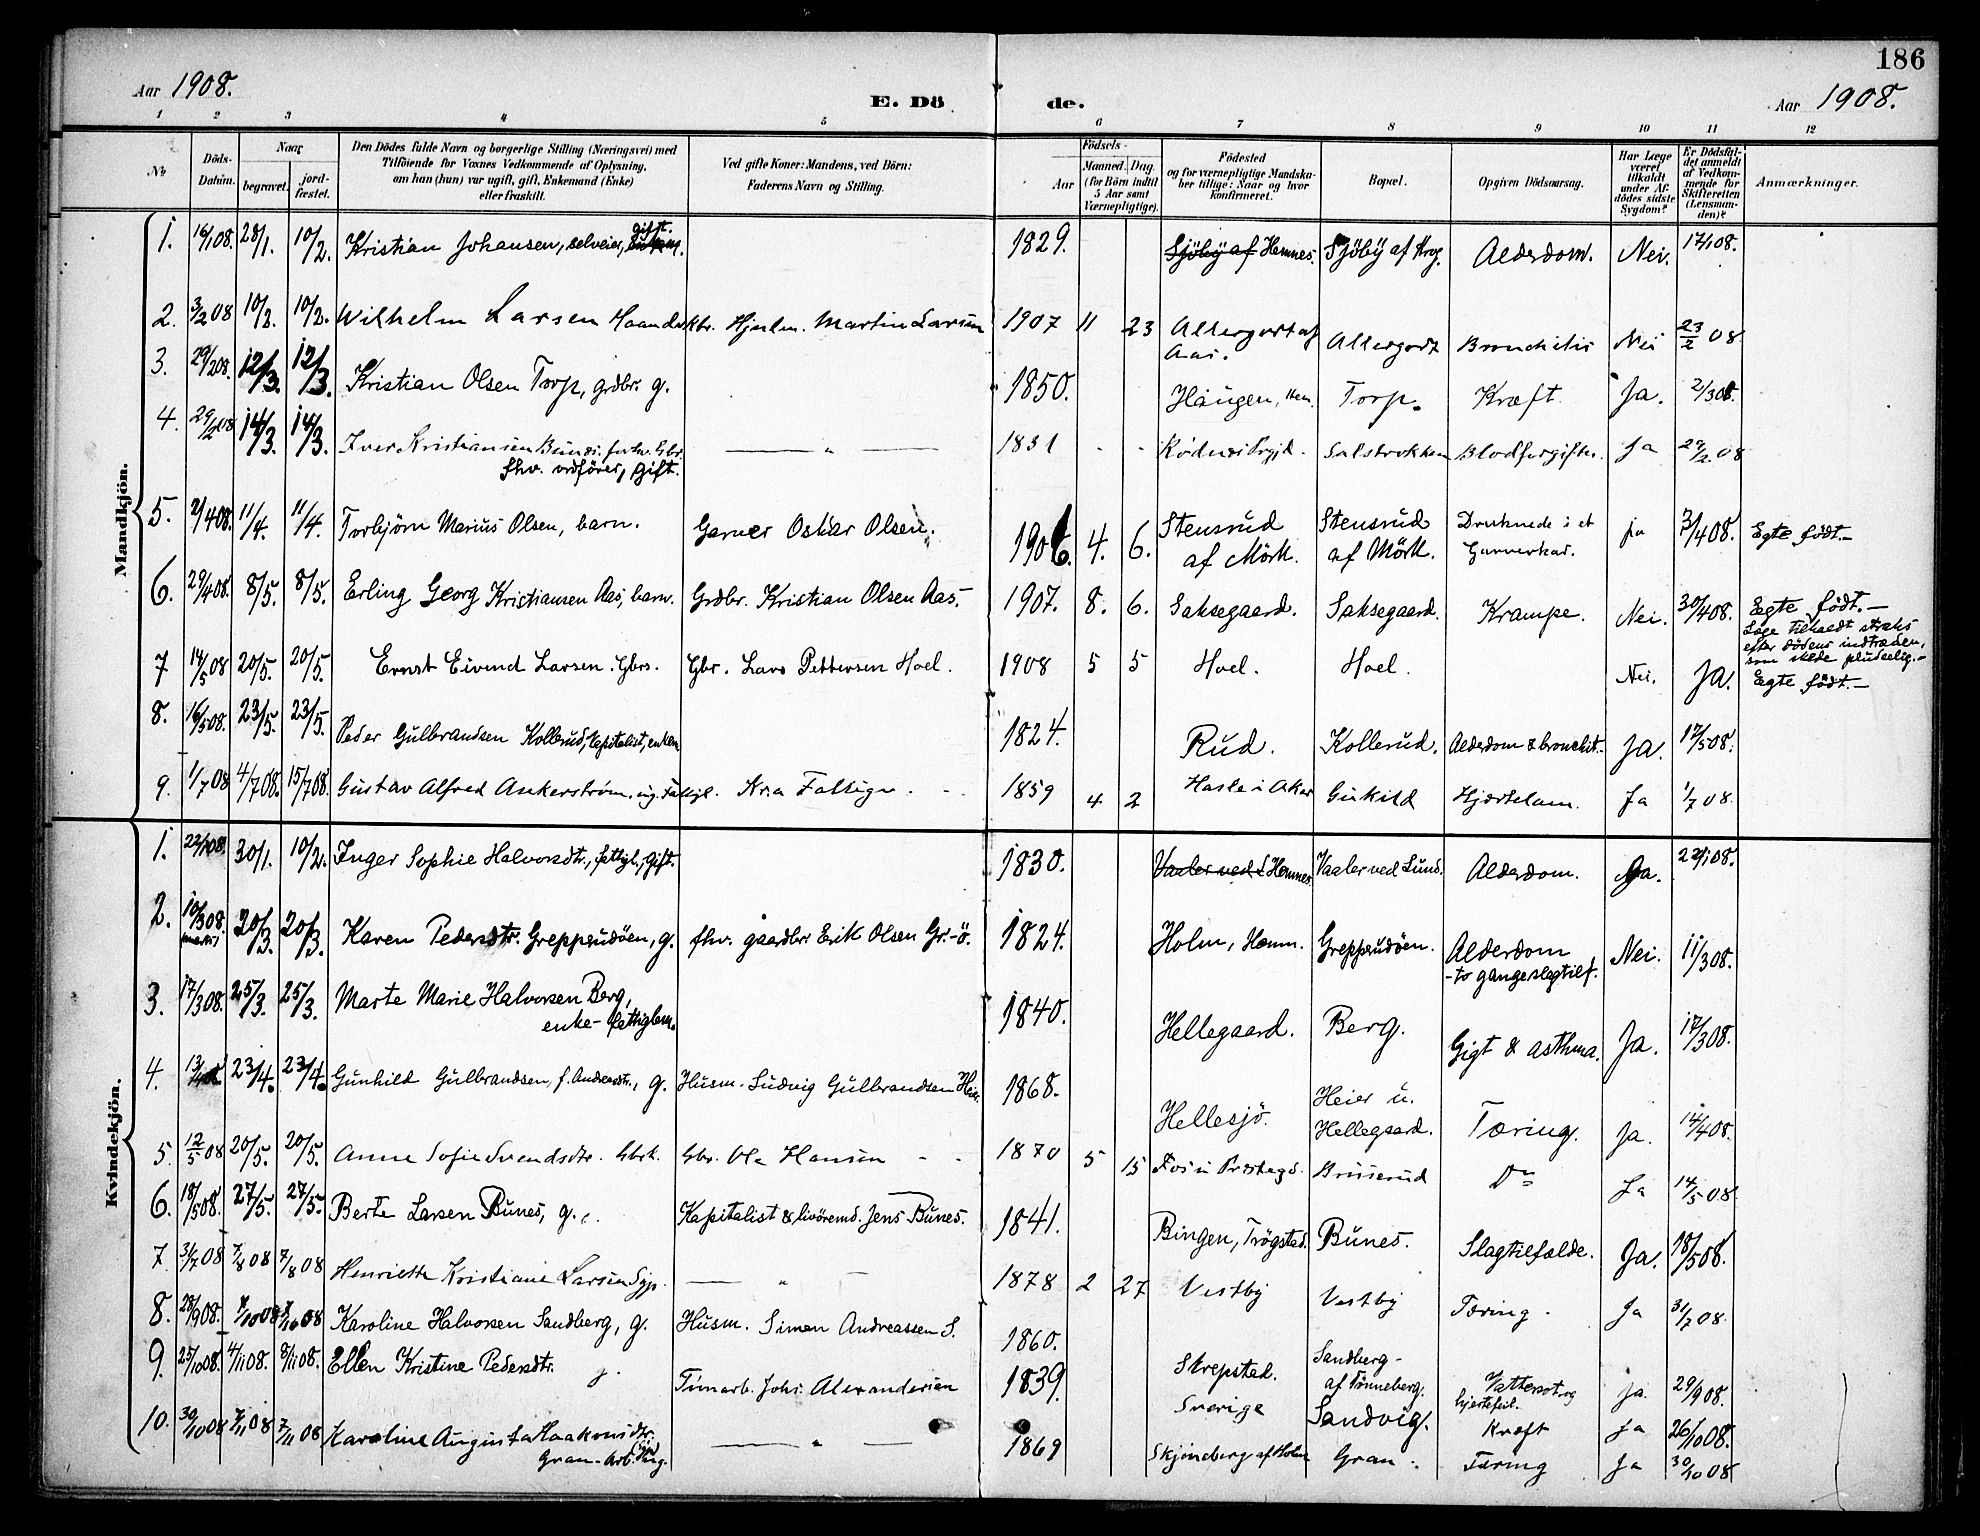 186
Aar 1908.
E. Dö
de.
Aar 1908.
1 2 3 4 5 6 7 8 9 10 11 12
No.
Döds-Datum.
Naar
begravet.
jordfæstet.
Den Dödes fulde Navn og borgerlige Stilling (Næringsvei) med
Tilföiende for Voxnes Vedkommende af Oplysning,
om han (hun) var ugift, gift, Enkemand (Enke)
eller fraskilt.
Ved gifte Koner: Mandens, ved Börn:
Faderens Navn og Stilling.
Födsels-
Aar
Maaned. Dag.
(for Börn indtil
5 Aar samt
Værnepligtige).
Födested
og for værnepligtige Mandskaber tillige: Naar og hvor
konfirmeret.
Bopæl.
Opgiven Dödsaarsag.
Har Læge
været
tilkaldt
under Afdödes sidste
Sygdom?
Er Dödsfaldet anmeldt
af Vedkommende for
Skifteretten
(Lensmanden)?
Anmærkninger.
Mandkjön.
1. 16/1 08. 28/1. 10/2. Kristian Johansen, selveier, gift. 1829. Sjöby af Hemnes. Sjöby af Krog. Alderdom. Nei. 17/1 08.
2. 3/2 08 10/2. 10/2. Wilhelm Larsen Haandv. Hjulm. Martin Larsen 1907 11 23 Altergodt af Aas. Altergodt Bronchitis Nei 23/2 08
3. 29/2 08. 12/3. 12/3. Kristian Olsen Torp, grdbr. g. 1850. Haugen, Hem. Torp. Kræft. Ja. 2/3 08.
4. 29/2 08 14/3. 14/3. Iver Kristiansen Bunæs. forhv. Gbr.
fhv. ordförer, gift. — " — 1831 - - Rödenes Prgjd. Sulstrokken Blodforgiftn. Ja 29/2 08
5. 2/4 08. 11/4. 11/4. Torbjörn Marius Olsen, barn. Garver Oskar Olsen. 1906. 4. 6. Stensrud af Mörk. Stensrud af Mörk. Druknede i et Garverkar. ja 3/4 08. Egte födt.—
6. 29/4 08. 8/5. 8/5. Erling Georg Kristiansen Aas, barn. Grdbr. Kristian Olsen Aas. 1907. 8. 6. Saksegaard. Saksegaard. Krampe. Nei. 30/4 08. Egte födt.—
Læge tilkaldt straks
efter dödens indtræden,
som skede pludselig.—
7 14/5 08 20/5. 20/5. Ernst Eivind Larsen. Gbrs. Gbr. Lars Pettersen Hoel. 1908 5 5 Hoel. Hoel. Nei. Ja. Egte födt.—
8. 16/5 08. 23/5. 23/5. Peder Gulbrandsen Kollerud, Kapitalist, enkem 1824. Rud. Kollerud. Alderdom & bronchit. Ja. 17/5 08.
9. 1/7 08 4/7 08. 15/7 08. Gustav Alfred Ankerström. ug. Fattigl. Kr.a Fattigv. 1859 4 2 Hasle i Aker Gukild Hjertelam. Ja 1/7 08.
Kvindekjön.
1. 22/1 08. 30/1. 10/2. Inger Sophie Halvorsdtr., fattigl., gift. 1830. Vaaler ved L Hemnes Vaaler ved Lund. Alderdom. Ja. 22/1 08.
2. 10/3 08. marts 20/3. 20/3. Karen Pedersdtr. Greppsudöen, g. fhv. gaardbr. Erik Olsen Gr.-ö. 1824. Holm, Hemn. Greppsudöen. Alderdom
-to ganger slagtilf. Nei. 11/3 08.
3. 17/3 08. 25/3. 25/3. Marte Marie Halvorsen Berg,
enke- fattiglem. 1840. Hellegaard. Berg. Gigt & asthma. Ja. 17/3 08.
4. 13/4 08 23/4. 23/4. Gunhild Gulbrandsen, f. Andersdtr., g. Husm. Ludvig Gulbrandsen Heier. 1868. Hellesjö. Heier u. Hellegaard. Tæring. Ja. 14/4 08.
5. 12/5 08 20/5. 20/5. Anne Sofie Svendsdtr. Gbrk. Gbr. Ole Hansen 1870 5 15 Fos i Prestegd. Brusserud Do Ja 14/5 08
6. 18/5 08. 27/5. 27/5. Berte Larsen Bunes, g. Kapitalist & livöremd. Jens Bunes. 1841. Bingen, Trögstad. Bunes. Slagtilfælde. Ja. 18/5 08.
7 31/7 08 7/8 08 7/8 08 Henriette Kristiane Larsen Syp. — " — 1878 2 27 Vestby Vestby Tæring. Ja 31/7 08.
8. 28/9 08. 7/10 08 7/10 08 Karoline Halvorsen Sandberg, g. Husm. Simen Andreassen S. 1860. Skrepstad. Sandberg- af Tönneberg. Vattersot og hjertefeil. Ja. 29/9 08.
9. 25/10 08. 4/11 08. 8/11 08. Ellen Kristine Pedersdtr. g. Tömarb. Johs. Alexandersen 1839. Sverige Sandvig. Kræft Ja 26/10 08.
10. 30/10 08 7/11 08 7/11 08 Karoline Augusta Haakonsdtr.
Gran- Arb. Png. — " — 1869 Skjöneberg af Holm Gran. Tæring Ja 30/10 08